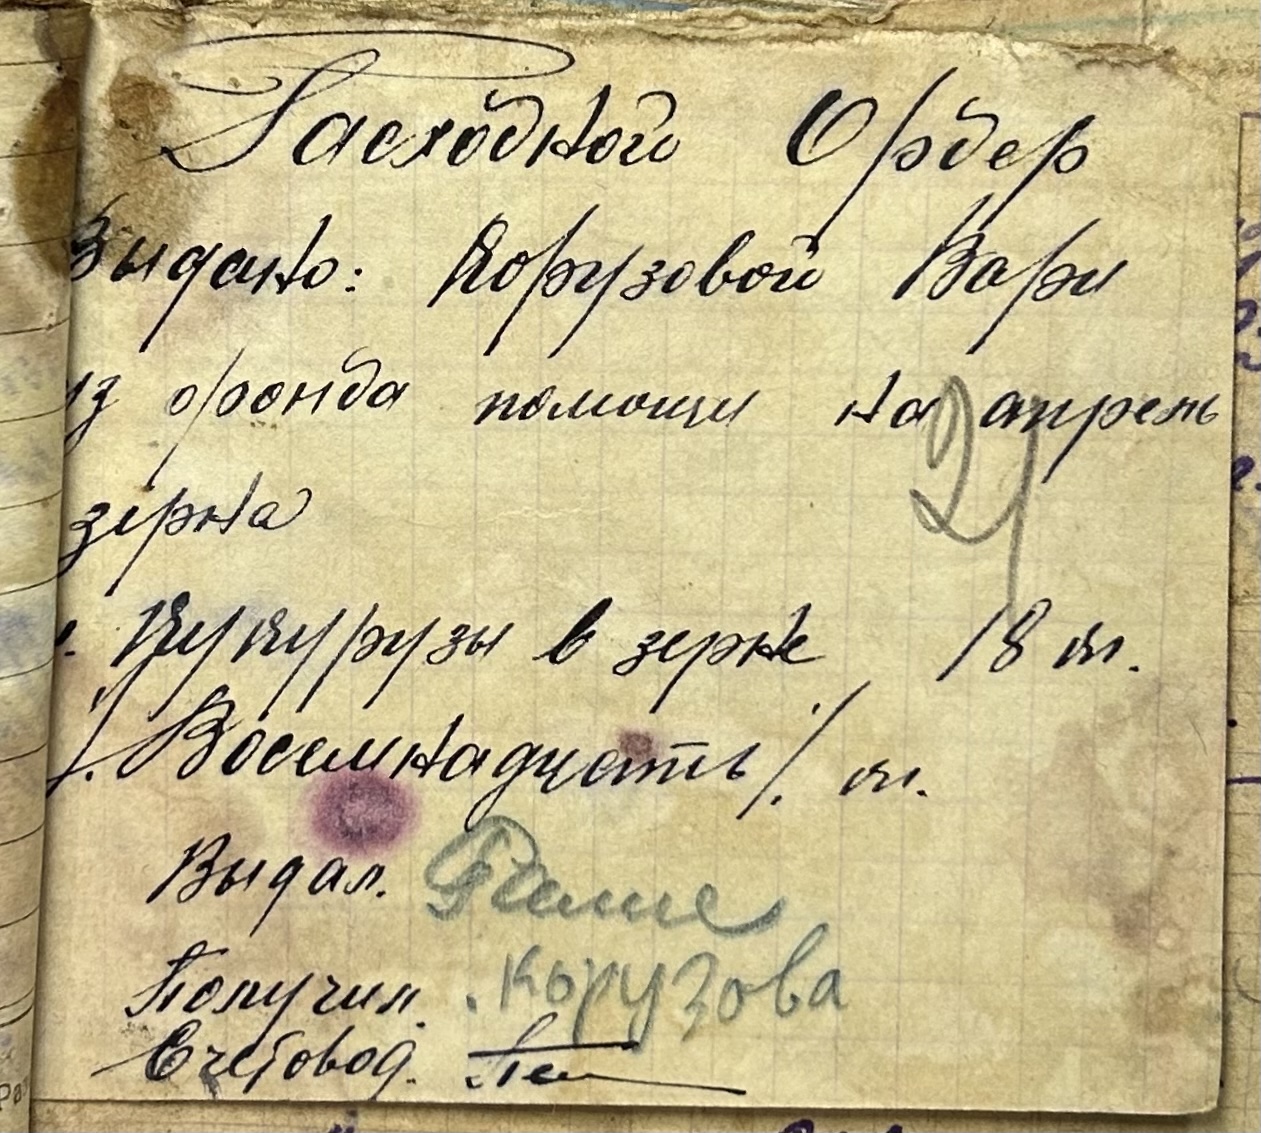 Расходной Ордер
Выдано: Корузовой Вари
из фонда помощи на апрель
21
зерна
1. Кукурузы в зерне 18 кг.
/. Восемнадцать /. кг.
Выдал.
Получил. Корузова
Счетовод.